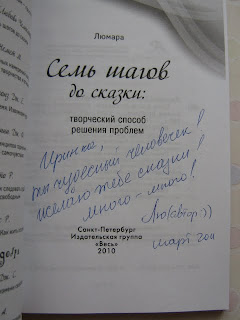 Люмара
Семь шагов
до сказки:
творческий способ
решения проблем
Иринка,
ты чудесный человечек!
желаю тебе сказки!
много – много!
(автор:))
март 2011
Санкт-Петербург
Издательская группа
«Весь»
2010